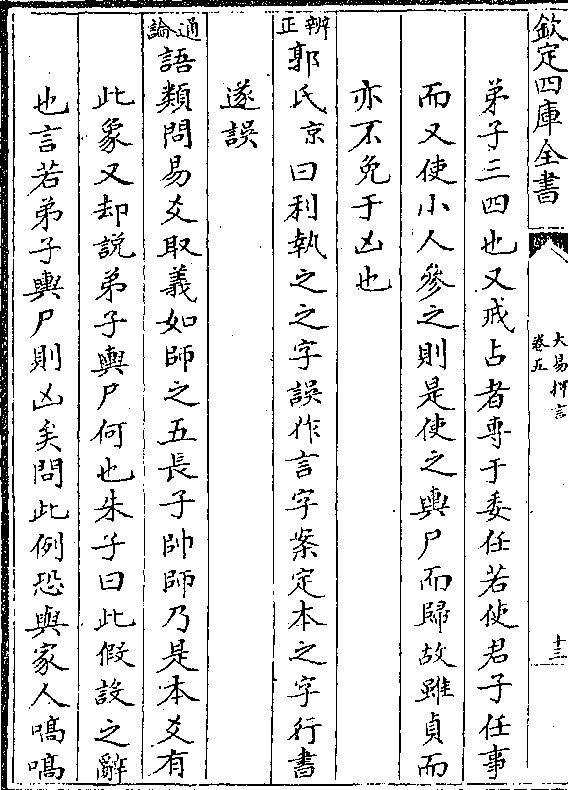 欽定四庫全書
大易擇言
卷五
十三
弟子三四也又戒占者專于委任若使君子任事
而又使小人參之則是使之輿尸而歸故雖貞而
亦不免于凶也
辨正
郭氏京曰利執之之字誤作言字案定本之字行書
遂誤
通論
語類問易爻取義如師之五長子帥師乃是本爻有
此象又却說弟子輿尸何也朱子曰此假設之辭
也言若弟子輿尸則凶矣問此例恐與家人嗃嗃